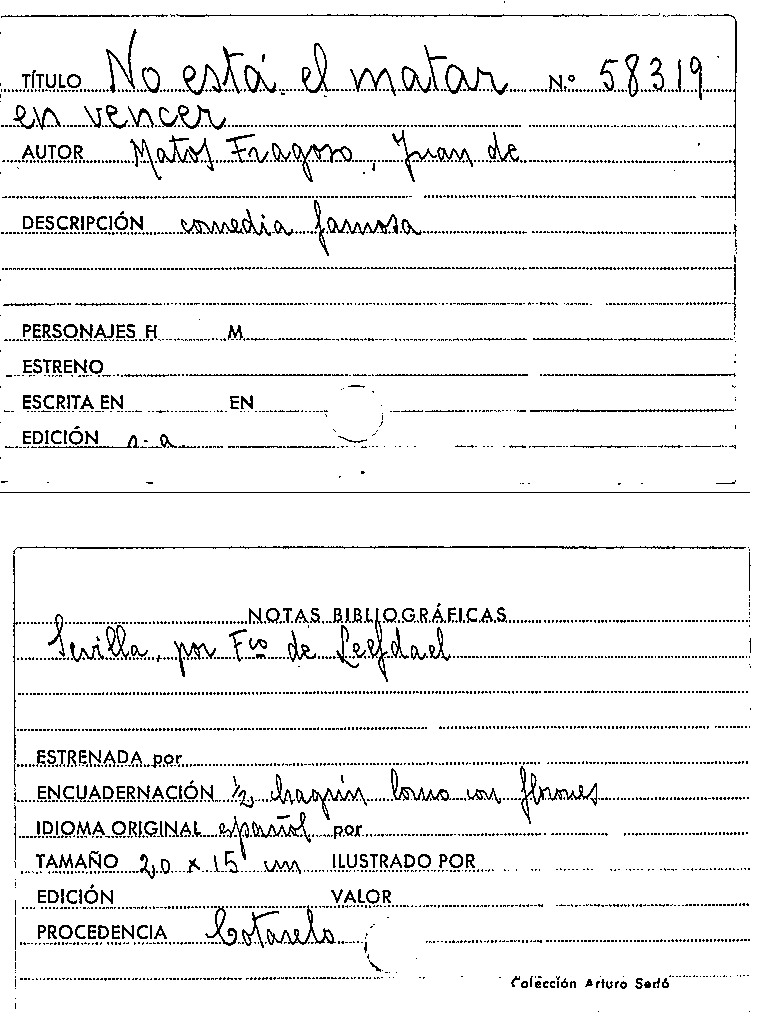 TÍTULO No está el matar N.º 58319
en vencer
AUTOR Matos Fragoso, Juan de
DESCRIPCIÓN comedia famosa
PERSONAJES H M
ESTRENO
ESCRITA EN EN
EDICIÓN s. a
NOTAS BIBLIOGRÁFICAS
Sevilla, por Fco de Leefdael
ESTRENADA por
ENCUADERNACIÓN ½ chagrín lomo con florones
IDIOMA ORIGINAL español por
TAMAÑO 20 x 15 cm ILUSTRADO POR
EDICIÓN VALOR
PROCEDENCIA Cotarelo
Colección Arturo Sedó